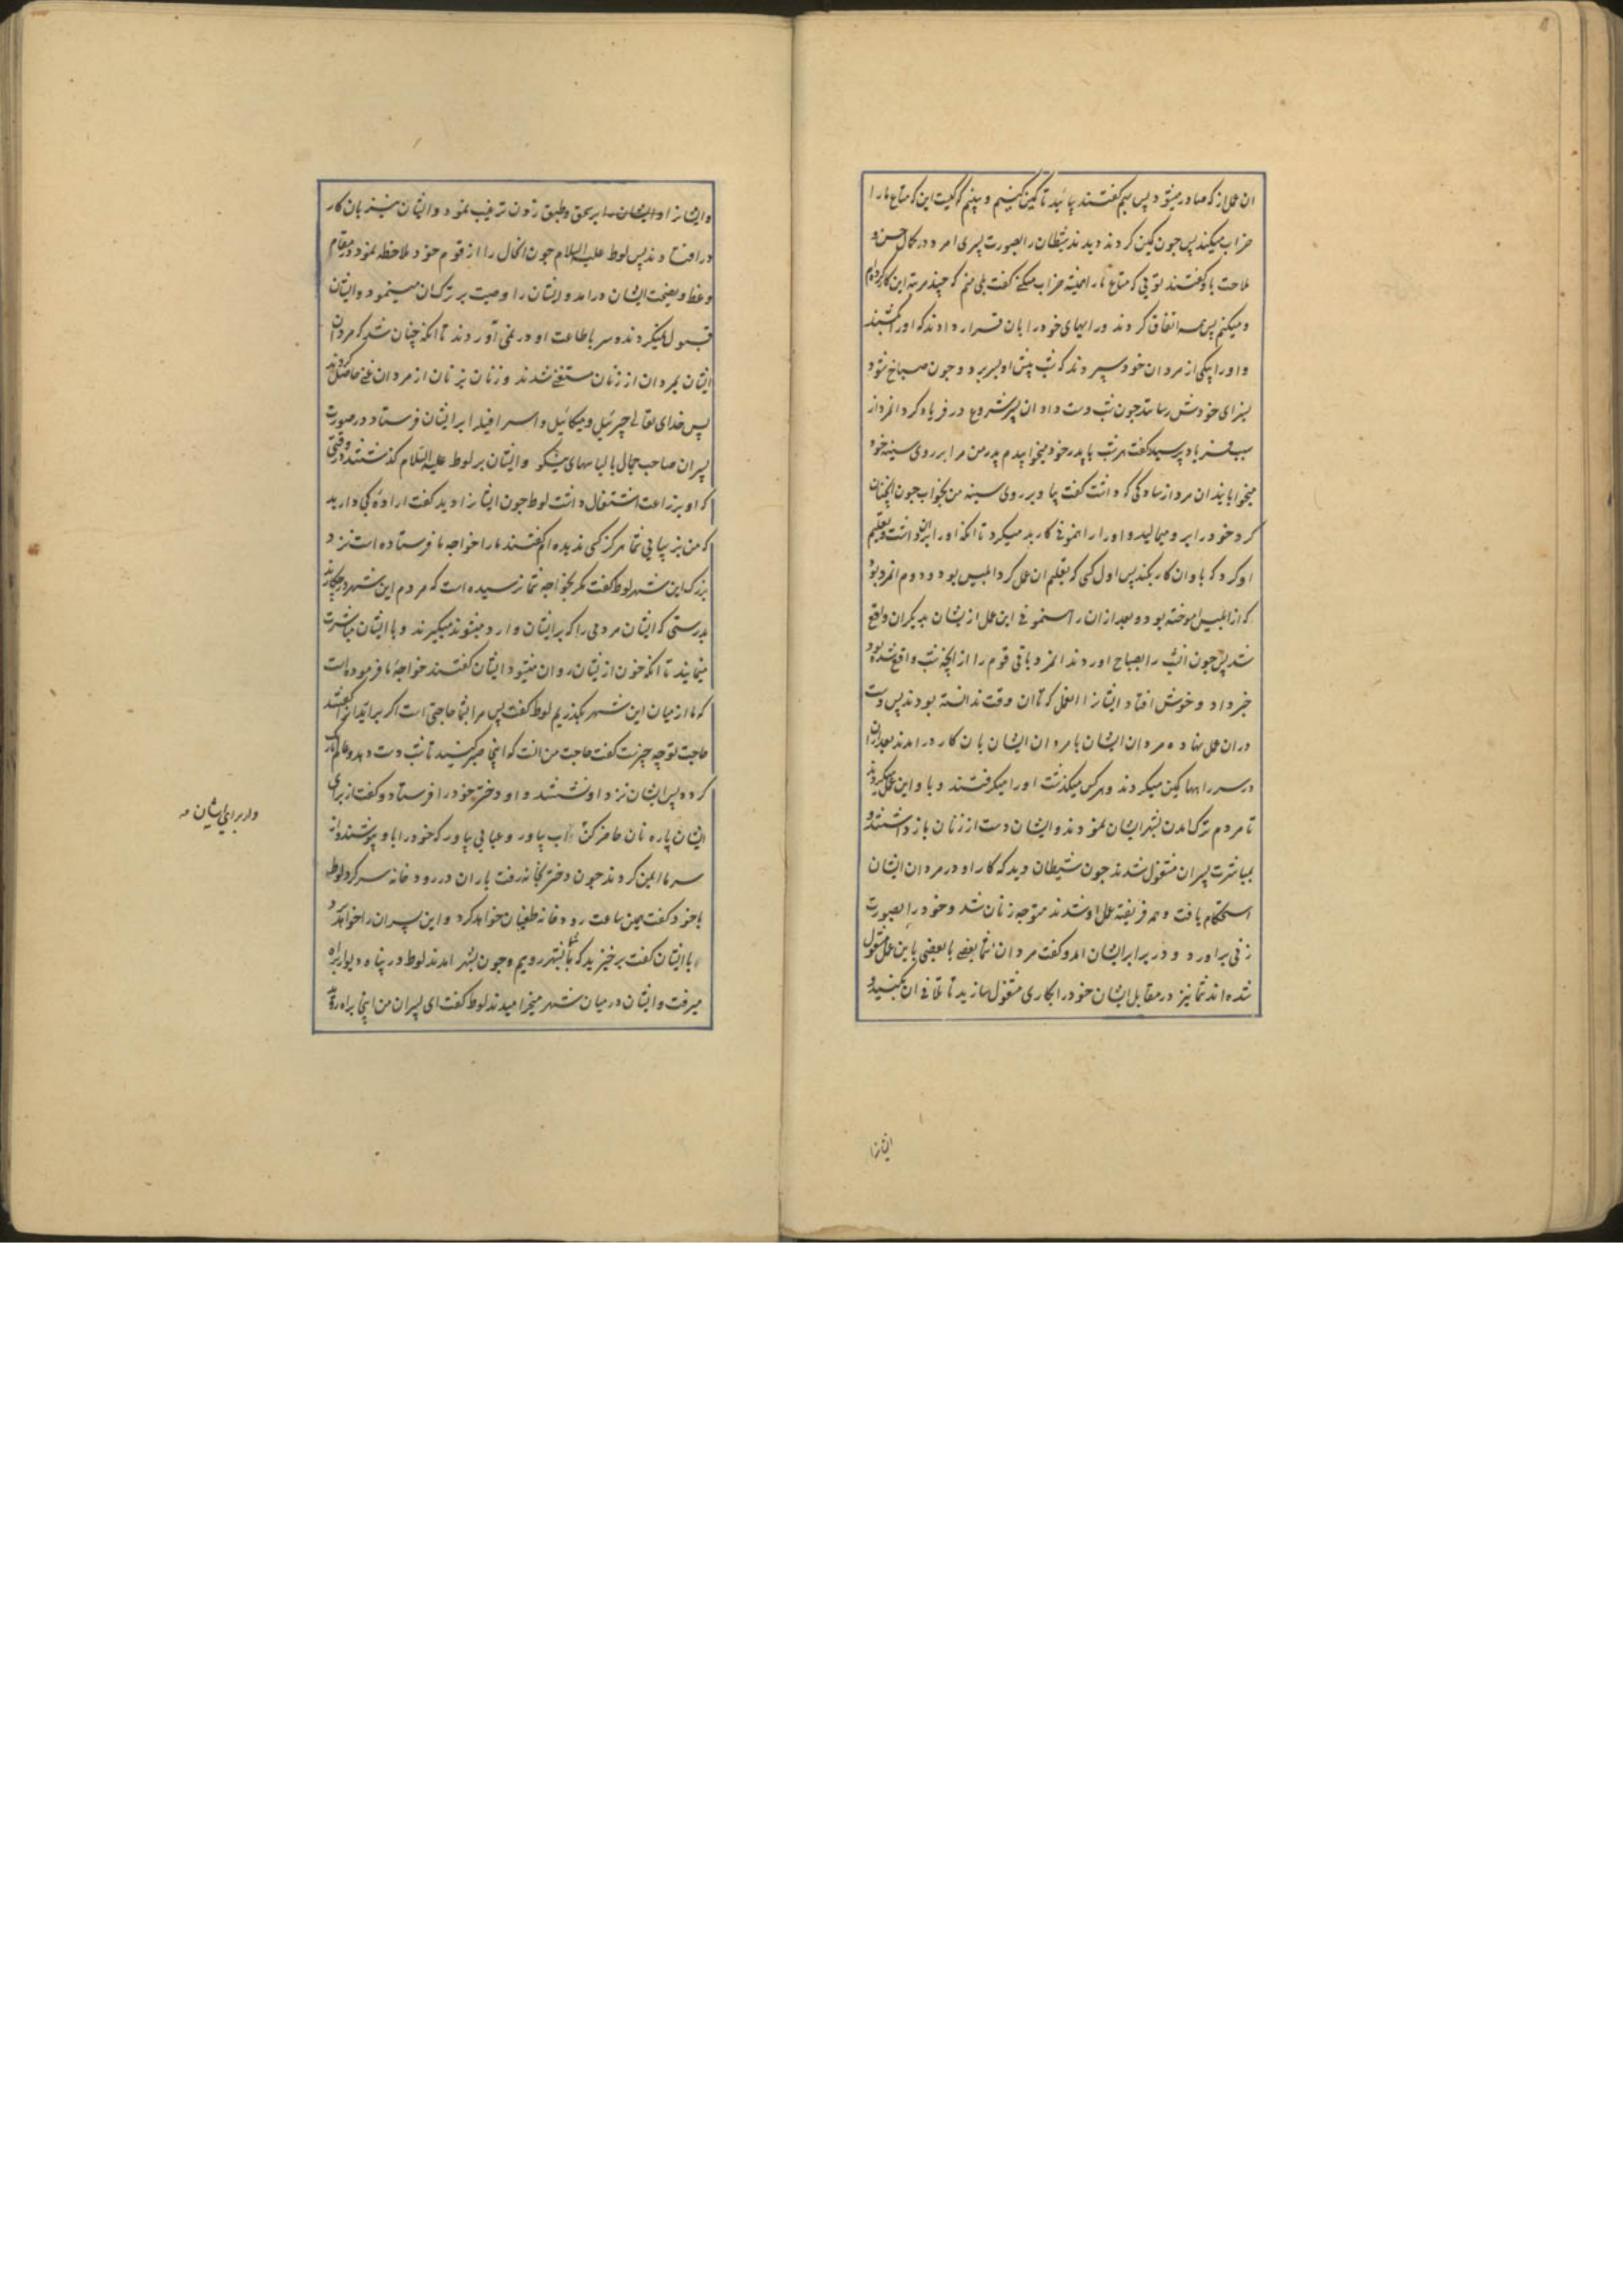 ان عمل از که صادر میشود پس بهم گفتند بیائید تا کمین کنیم و ببینیم که کیست این که متاع ما را
خراب میکند پس چون کمین کردند دیدند شیطان را بصورت پسری امرد در کمال حسن و
ملاحت باو گفتند توئی که متاع ما را همیشه خراب میکنی گفت بلی منم که چند مرتبه این کار کرده‌ام
و میکنم پس همه اتفاق کردند و رایهای خود را بان قرار دادند که او را بکشند
و او را بیکی از مردان خود سپردند که شب پیش او بسر برد و چون صباح شود
بسزای خودش رسانند چون شب دست داد ان پسر شروع در فریاد کرد انمرد از
سبب فریاد پرسید گفت هر شب با پدر خود میخوابیدم پدر من مرا بر روی سینه خود
میخوابانید ان مرد از ساده‌گی که داشت گفت بیا و بر روی سینه من بخواب چون انچنان
کرد خود را بر و میمالید و او را راهنمونی کار بد میکرد تا انکه او را بران داشت و تعلیم
او کرد که باو ان کار بکند پس اول کسی که تعلیم ان عمل کرد ابلیس بود و دوم انمرد بود
که از ابلیس اموخته بود و بعد از ان راهنمونی این عمل از ایشان بدیکران واقع
شد پس چون انشب را بصباح اوردند انمرد باقی قوم را از انچه شب واقع شده بود
خبر داد و خوش افتاد ایشانرا انعمل که تا ان وقت ندانسته بودند پس دست
در ان عمل نهاده مردان ایشان با مردان ایشان بان کار درامدند بعد از ان
در سر راهها کمین میکردند و هر کس میکذشت او را میکرفتند و باو این عمل میکردند
تا مردم ترک امدن بشهر ایشان نمودند و ایشان دست از زنان بازداشتند و
بمباشرت پسران مشغول شدند چون شیطان دید که کار او در مردان ایشان
استحکام یافت و همه فریفته عمل او شدند متوجه زنان شد و خود را بصورت
زنی براورد و در برابر ایشان امد و گفت مردان شما بعضی با بعضی باین عمل مشغول
شده‌اند شما نیز در مقابل ایشان خود را بکاری مشغول سازید تا تلافی ان بکنید و
ایشانرا
و ایشانرا و ایشان را بر سحق و طبق زدن ترغیب نمود و ایشان نیز بان کار
در افتادند پس لوط علیه السلام چون انحال را از قوم خود ملاحظه نمود در مقام
وعظ و نصیحت ایشان درامد و ایشان را وصیت بر ترک ان مینمود و ایشان
قبول نمیکردند و سر باطاعت او در نمی‌آوردند تا انکه چنان شد که مردان
ایشان بمردان از زنان مستغنی شدند و زنان بزنان از مردان غنی حاصل کردند
پس خدای تعالی جبرئیل و میکائیل و اسرافیل را بر ایشان فرستاد در صورت
پسران صاحب جمال با لباسهای نیکو و ایشان بر لوط علیه السلام کذشتند در وقتی
که او بزراعت اشتغال داشت لوط چون ایشانرا دید گفت اراده کجا دارید
که من بزیبایی شما هرکز کسی ندیده‌ام گفتند ما را خواجه ما فرستاده است نزد
بزرک این شهر لوط گفت مکر بخواجه شما نرسیده است که مردم این شهر در چه کارند
بدرستی که ایشان مردمی را که بر ایشان وارد میشوند میکیرند و با ایشان مباشرت
مینمایند تا انکه خون از ایشان روان میشود ایشان گفتند خواجه ما فرموده است
که ما از میان این شهر بکذریم لوط گفت پس مرا بشما حاجتی است اکر برارید انرا گفتند
حاجت تو چه چیزست گفت حاجت من انست که اینجا صبر کنید تا شب دست دهد و عالم تاریک
کردد پس ایشان نزد او نشستند و او دختر خود را فرستاد و گفت از برای
ایشان پاره نان حاضر کن و اب بیاور و عبایی بیاور که خود را باو بپوشند و از
سرما ایمن کردند چون دختر بخانه رفت باران در رودخانه سر کرد لوط
با خود گفت همین ساعت رودخانه طغیان خواهد کرد و این پسران را خواهد برد
با ایشان گفت برخیزید که تا بشهر رویم و چون بشهر امدند لوط در پناه دیوار براه
میرفت و ایشان در میان شهر میخرامیدند لوط گفت ای پسران من اینجا براه روید
و از برای ایشان